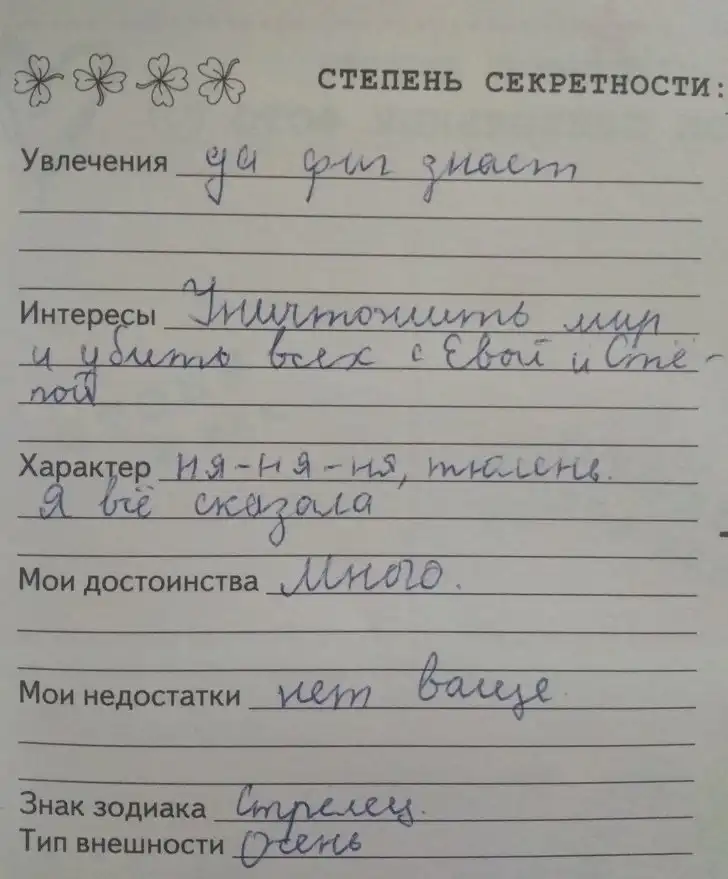 СТЕПЕНЬ СЕКРЕТНОСТИ:
Увлечения да фиг знает
Интересы Уничтожить мир
и убить всех с Евой и Стё-
пой
Характер ня-ня-ня, тюлень.
Я всё сказала
Мои достоинства Много.
Мои недостатки нет ваще.
Знак зодиака Стрелец.
Тип внешности Осень